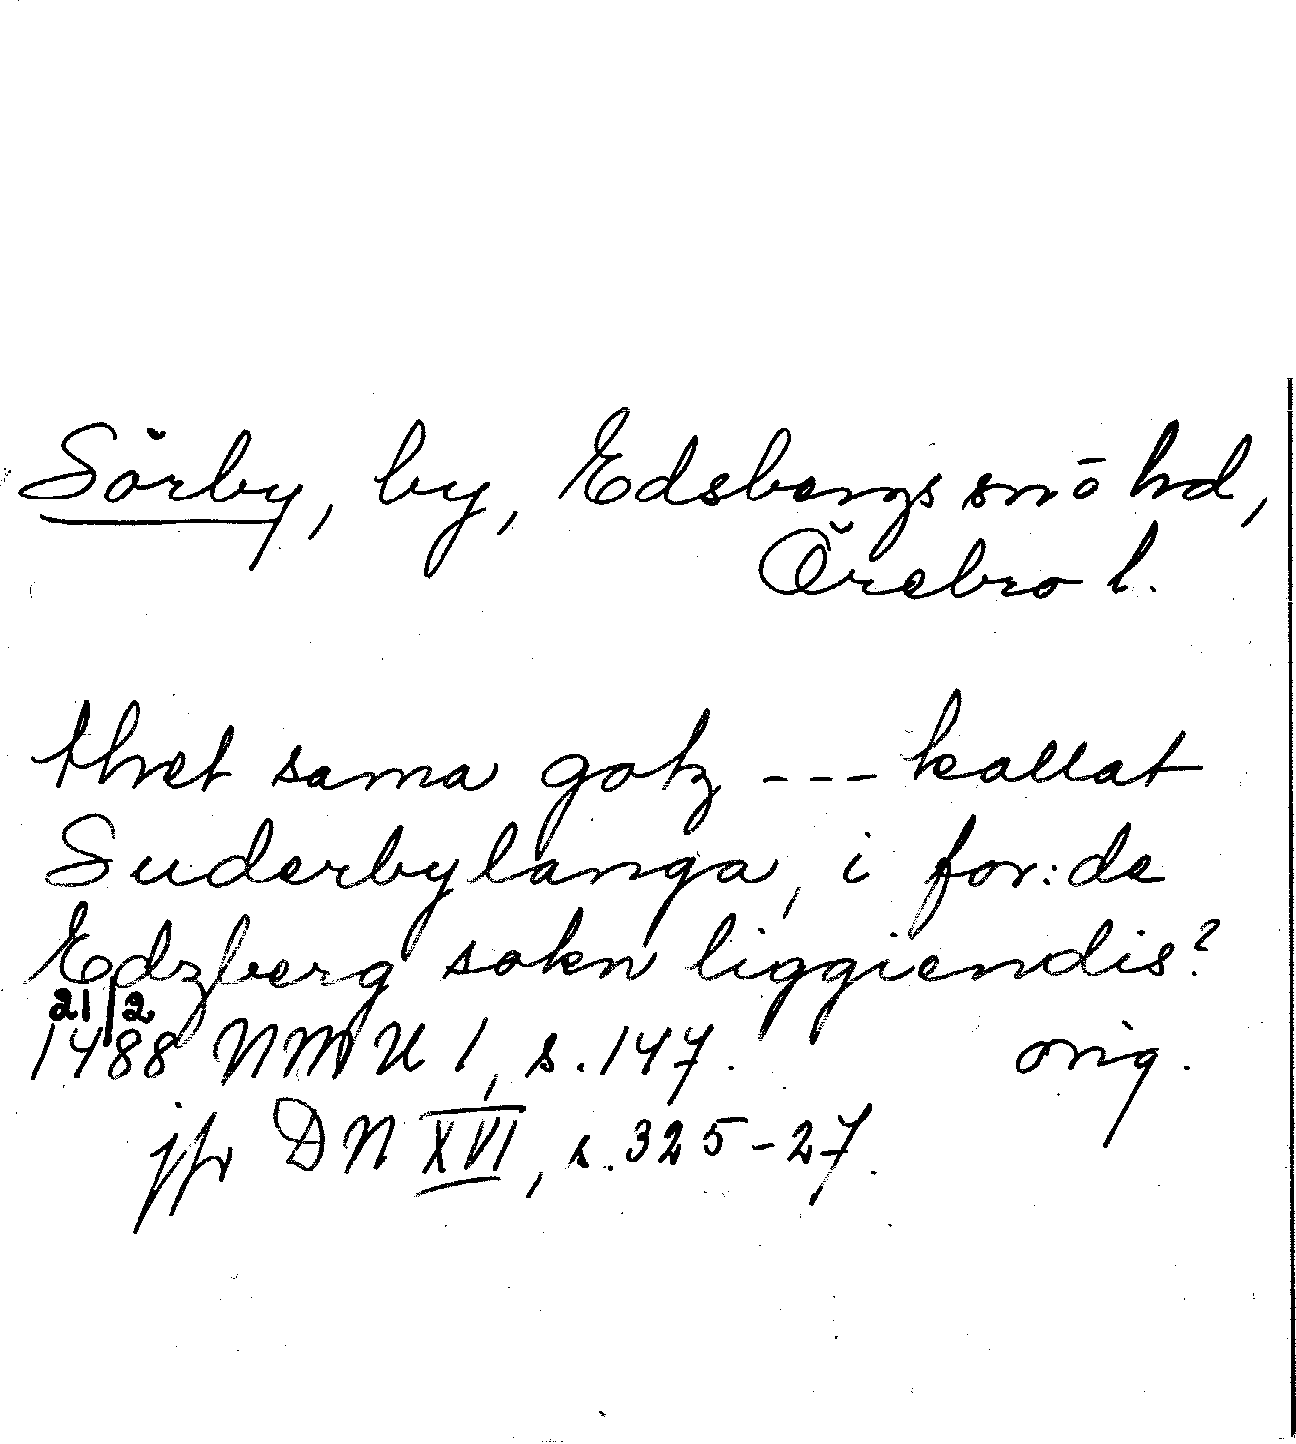 Sörby, by, Edsbergs sn ō hd,
Örebro l.
thet sama gotz --- kallat
Suderbylanga, i for:de
Edzberg sokn liggiendis?
21/2
1488 NMU 1, s. 147. orig.
jfr DN XVI, s. 325-27.